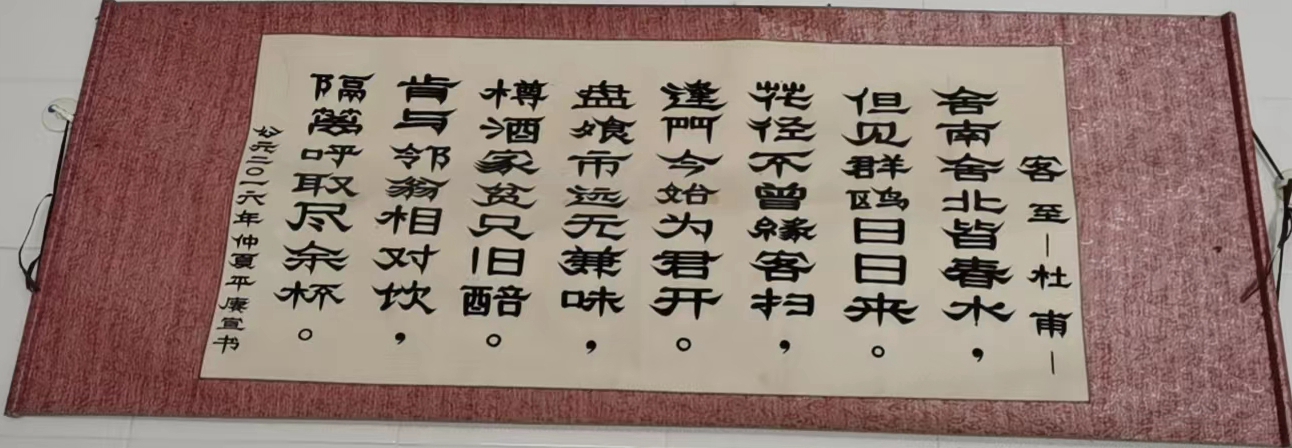 客至—杜甫—
舍南舍北皆春水，
但见群鸥日日来。
花径不曾缘客扫，
蓬门今始为君开。
盘飧市远无兼味，
樽酒家贫只旧醅。
肯与邻翁相对饮，
隔篱呼取尽余杯。
公元二〇一六年仲夏平康宣书